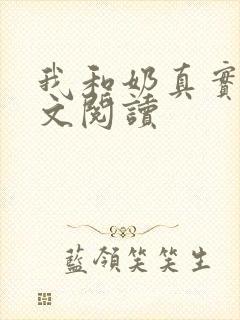 我和奶真實
文閱讀
藍領笑笑生